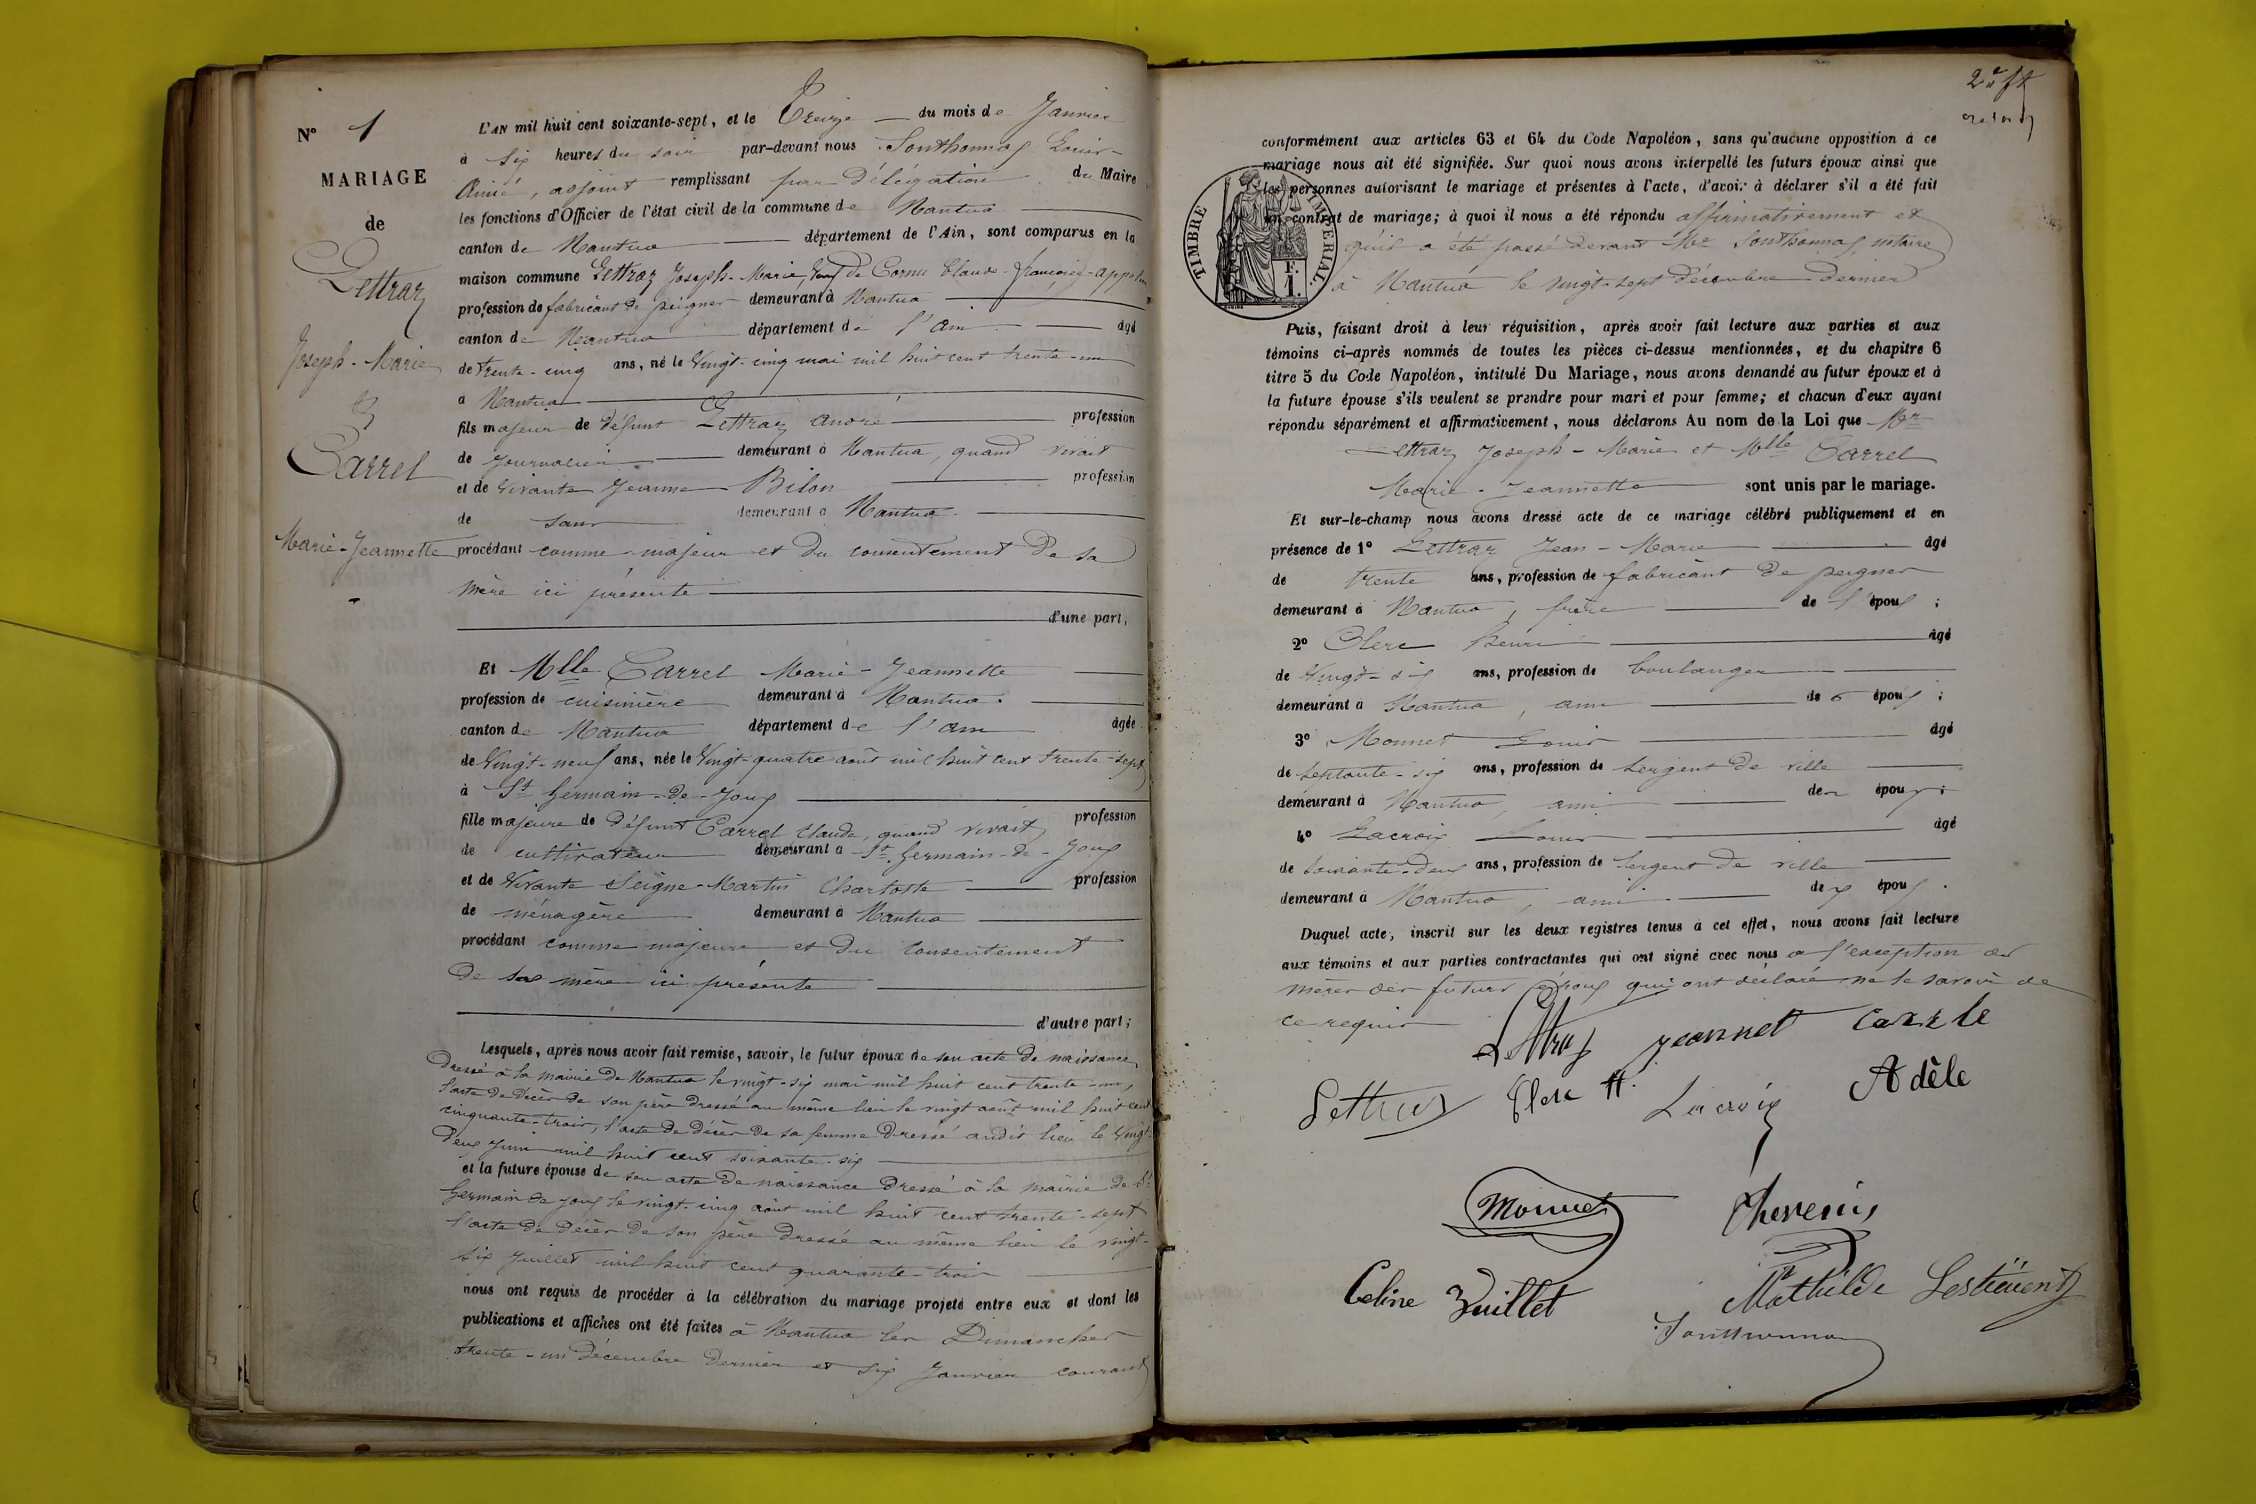 N° 1
MARIAGE
de
Lettraz
Joseph-Marie
&
Carrel
Marie-Jeannette
L'AN mil huit cent soixante-sept, et le Treize du mois de Janvier
à six heures du soir par-devant nous Sonthonnax Louis-
Aimé, adjoint remplissant par Délégation du Maire
les fonctions d'Officier de l'état civil de la commune de Nantua
canton de Nantua département de l'Ain, sont comparus en la
maison commune Lettraz Joseph-Marie, veuf de Cornu Claude-Françoise-
profession de fabricant de peignes demeurant à Nantua
canton de Nantua département de l'Ain âgé
de trente-cinq ans, né le vingt-cinq mai mil huit cent trente-un
à Nantua
fils majeur de défunt Lettraz André profession
de journalier demeurant à Nantua, quand vivait
et de vivante Jeanne Bilon profession
de sans demeurant à Nantua
procédant comme majeur et du consentement de sa
mère ici présente
d'une part,
Et Mlle Carrel Marie-Jeannette
profession de cuisinière demeurant à Nantua
canton de Nantua département de l'Ain âgée
de vingt-neuf ans, née le vingt-quatre août mil huit cent trente-sept
à St Germain-de-Joux
fille majeure de défunt Carrel Claude, quand vivait profession
de cultivateur demeurant à St Germain-de-Joux
et de vivante Seigne-Martin Charlotte profession
de ménagère demeurant à Nantua
procédant comme majeure et du consentement
de sa mère ici présente
d'autre part;
Lesquels, après nous avoir fait remise, savoir, le futur époux de son acte de naissance
dressé à la mairie de Nantua le vingt-six mai mil huit cent trente-un,
l'acte de décès de son père dressé au même lieu le vingt août mil huit cent
cinquante-trois, l'acte de décès de sa femme dressé audit lieu le vingt-
deux juin mil huit cent soixante-six
et la future épouse de son acte de naissance dressé à la mairie de St
Germain de Joux le vingt-cinq août mil huit cent trente-sept
l'acte de décès de son père dressé au même lieu le vingt-
six juillet mil huit cent quarante-trois
nous ont requis de procéder à la célébration du mariage projeté entre eux et dont les
publications et affiches ont été faites à Nantua les Dimanches
trente-un décembre dernier et six janvier courant
conformément aux articles 63 et 64 du Code Napoléon, sans qu'aucune opposition à ce
mariage nous ait été signifiée. Sur quoi nous avons interpellé les futurs époux ainsi que
les personnes autorisant le mariage et présentes à l'acte, d'avoir à déclarer s'il a été fait
un contrat de mariage; à quoi il nous a été répondu affirmativement et
qu'il a été passé devant Me Sonthonnax notaire
à Nantua le vingt-sept décembre dernier
TIMBRE IMPÉRIAL
F.
1.
Puis, faisant droit à leur réquisition, après avoir fait lecture aux parties et aux
témoins ci-après nommés de toutes les pièces ci-dessus mentionnées, et du chapitre 6
titre 5 du Code Napoléon, intitulé Du Mariage, nous avons demandé au futur époux et à
la future épouse s'ils veulent se prendre pour mari et pour femme; et chacun d'eux ayant
répondu séparément et affirmativement, nous déclarons Au nom de la Loi que Mr
Lettraz Joseph-Marie et Mlle Carrel
Marie-Jeannette sont unis par le mariage.
Et sur-le-champ nous avons dressé acte de ce mariage célébré publiquement et en
présence de 1° Lettraz Jean-Marie âgé
de trente ans, profession de fabricant de peignes
demeurant à Nantua, frère de l'époux;
2° Clerc Henri âgé
de vingt-six ans, profession de boulanger
demeurant à Nantua, ami de époux;
3° Monnet Louis âgé
de septante-six ans, profession de sergent de ville
demeurant à Nantua, ami de époux;
4° Lacroix Louis âgé
de soixante-deux ans, profession de sergent de ville
demeurant à Nantua, ami de époux.
Duquel acte, inscrit sur les deux registres tenus à cet effet, nous avons fait lecture
aux témoins et aux parties contractantes qui ont signé avec nous à l'exception des
mères des futurs époux qui ont déclaré ne le savoir de
ce requis
Lettraz Jeannet Carrle
Lettraz Clerc H. Lacroix Adèle
Monnet
Celine Vuillet Mathilde
Sonthonnax